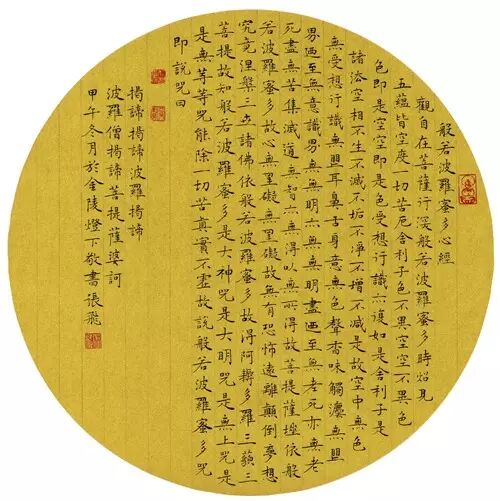 般若波羅蜜多心經
觀自在菩薩行深般若波羅蜜多時炤見
五蘊皆空度一切苦厄舍利子色不異空空不異色
色即是空空即是色受想行識亦復如是舍利子是
諸法空相不生不滅不垢不淨不增不減是故空中無色
無受想行識無眼耳鼻舌身意無色聲香味觸法無眼
界迺至無意識界無無明亦無無明盡迺至無老死亦無老
死盡無苦集滅道無智亦無得以無所得故菩提薩埵依般
若波羅蜜多故心無罣礙無罣礙故無有恐怖遠離顛倒夢想
究竟涅槃三世諸佛依般若波羅蜜多故得阿耨多羅三藐三
菩提故知般若波羅蜜多是大神咒是大明咒是無上咒
是無等等咒能除一切苦真實不虛故說般若波羅蜜多咒
即說咒曰
揭諦揭諦波羅揭諦
波羅僧揭諦菩提薩婆訶
甲午冬月於金陵燈下敬書張飛